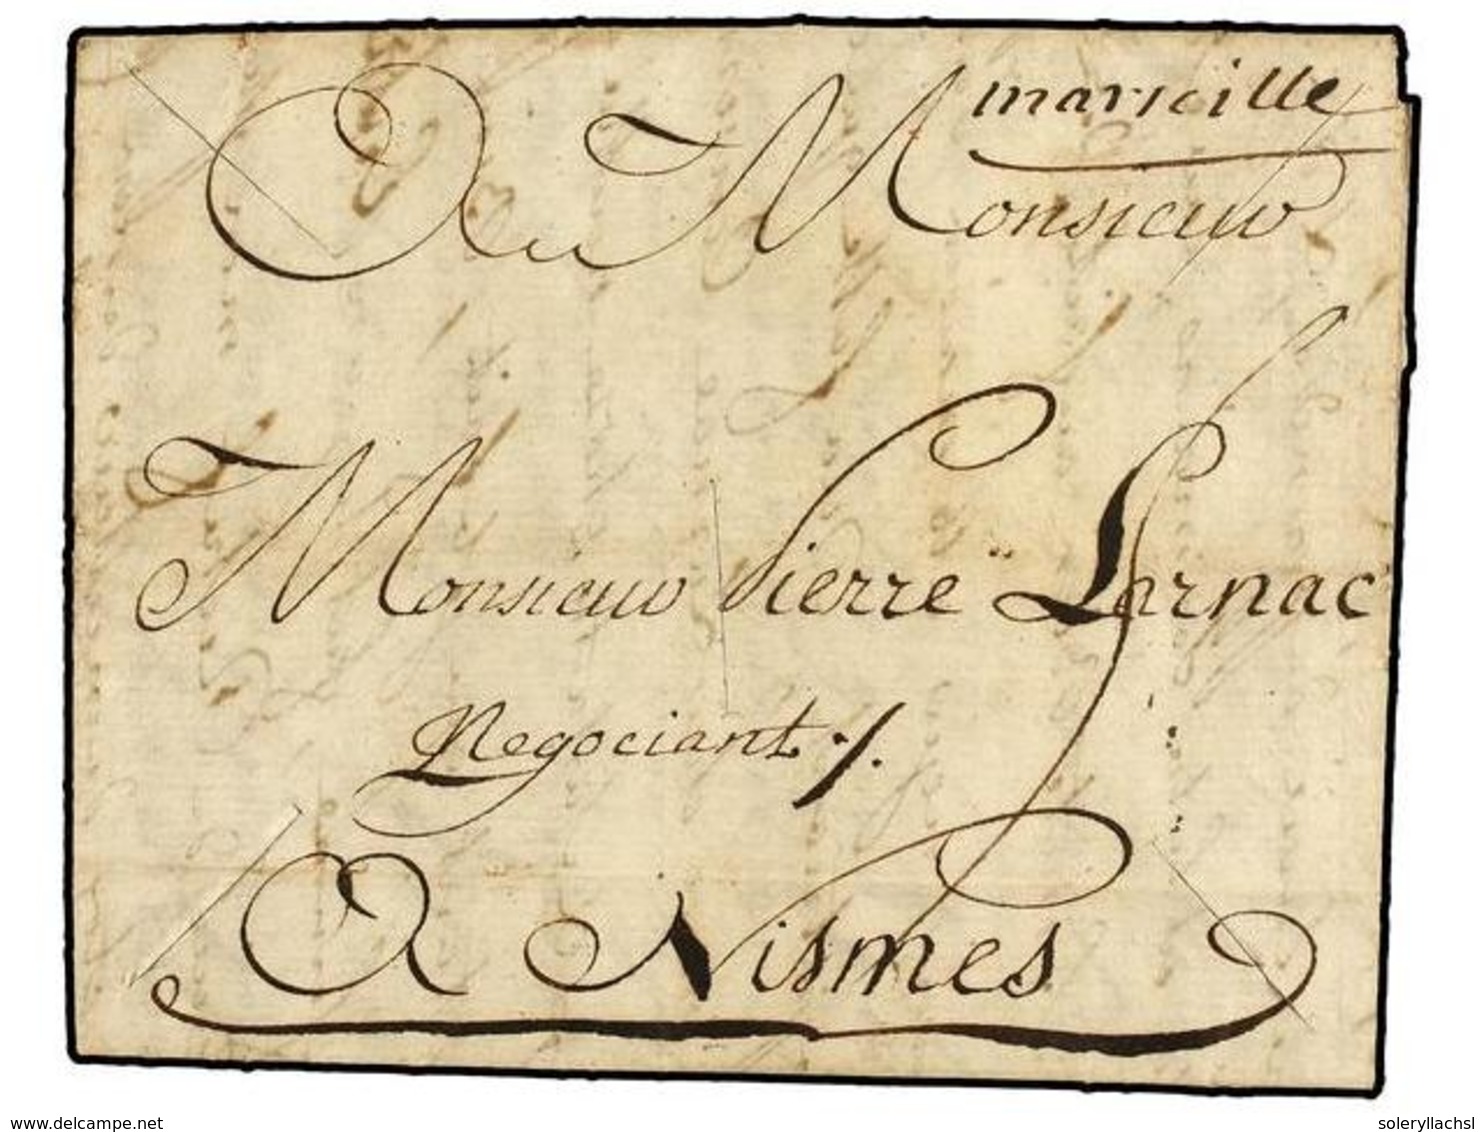 marseille
A Monsieur
Monsieur Pierre Larnac
Negociant /.
A Nismes
www.delcampe.net
soleryllachsl